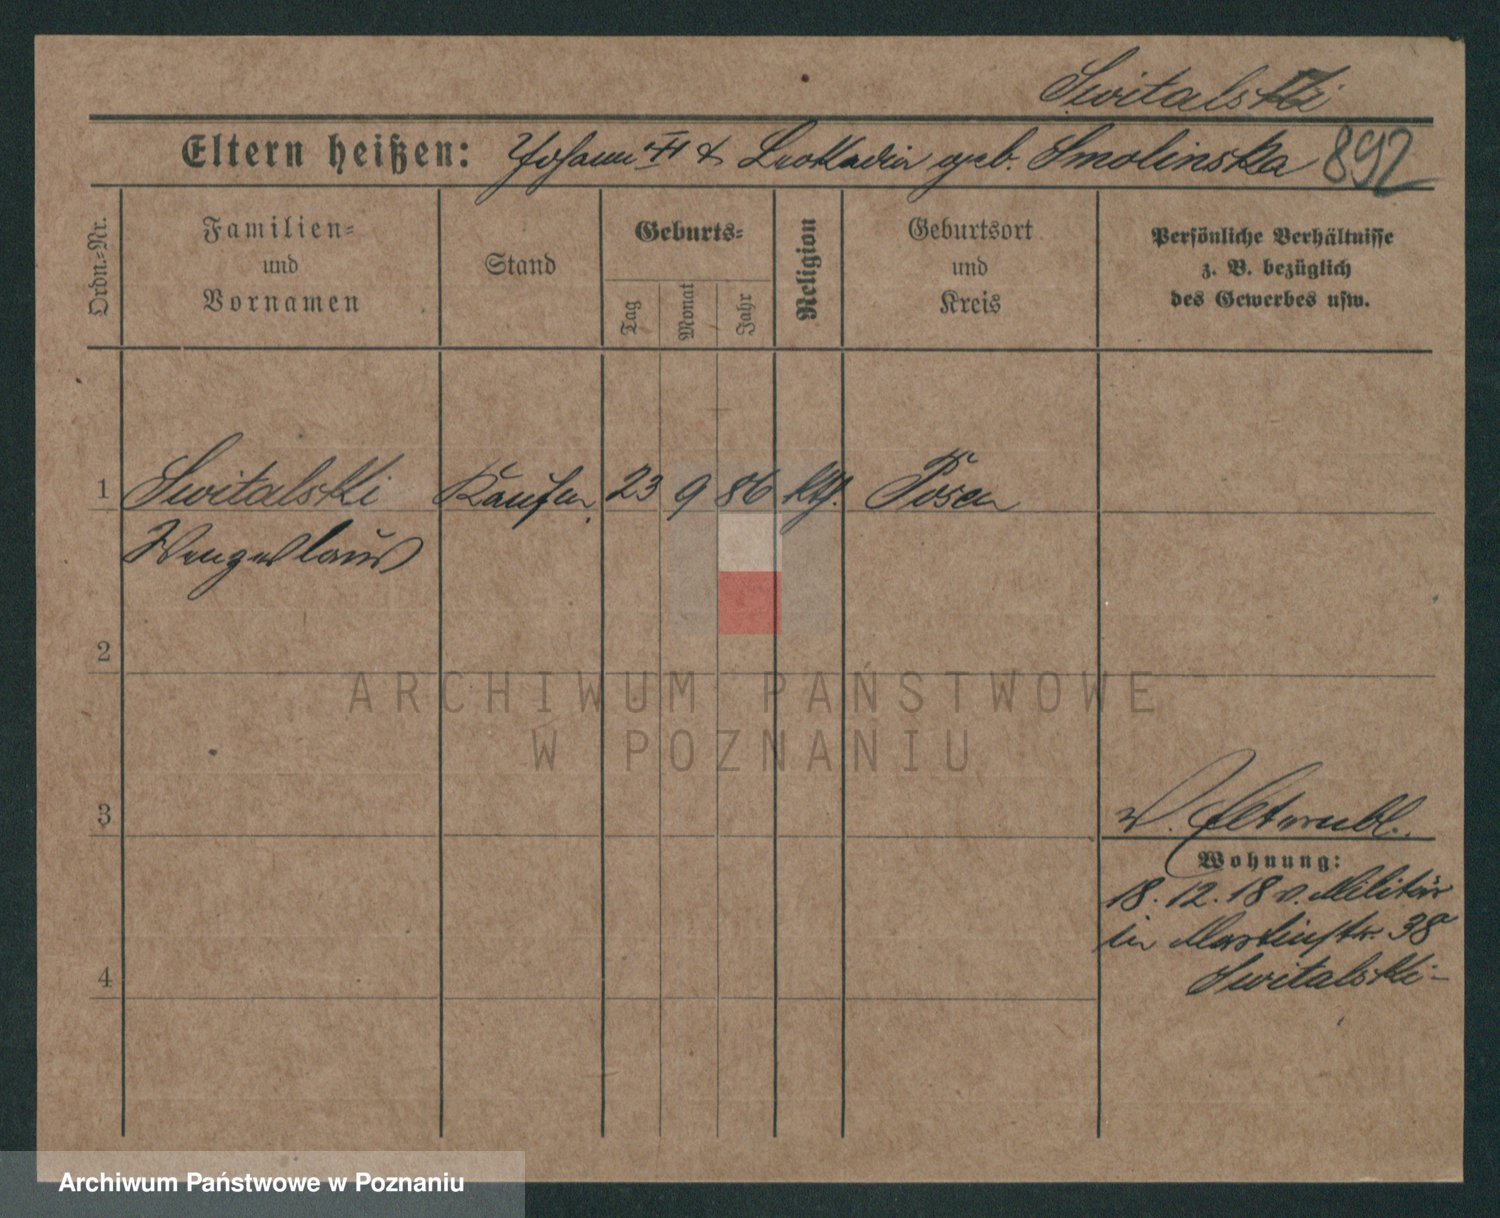 Switalski
Eltern heißen: Johann & Leokadia geb. Smolinska 892
Ordn.-Nr.
Familien-
und
Vornamen
Stand
Geburts-
Tag
Monat
Jahr
Religion
Geburtsort
und
Kreis
Persönliche Verhältnisse
z. B. bezüglich
des Gewerbes usw.
1 Switalski Kaufm. 23 9 86 kth. Posen
Wenzeslaus
2
ARCHIWUM PAŃSTWOWE
W POZNANIU
3
Wohnung:
18.12.18 v. Militär
in Martinstr. 38
4
Switalski
Archiwum Państwowe w Poznaniu